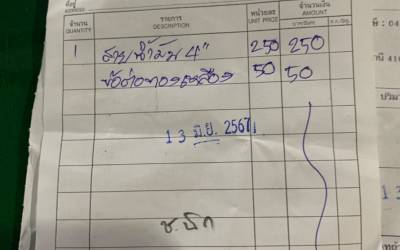 ที่อยู่
ADDRESS
จำนวน รายการ หน่วยละ จำนวนเงิน
QUANTITY DESCRIPTION UNIT PRICE AMOUNT
1 สายน้ำมัน 4" 250 250
ข้อต่อทองเหลือง 50 50
13 มิ.ย. 2567